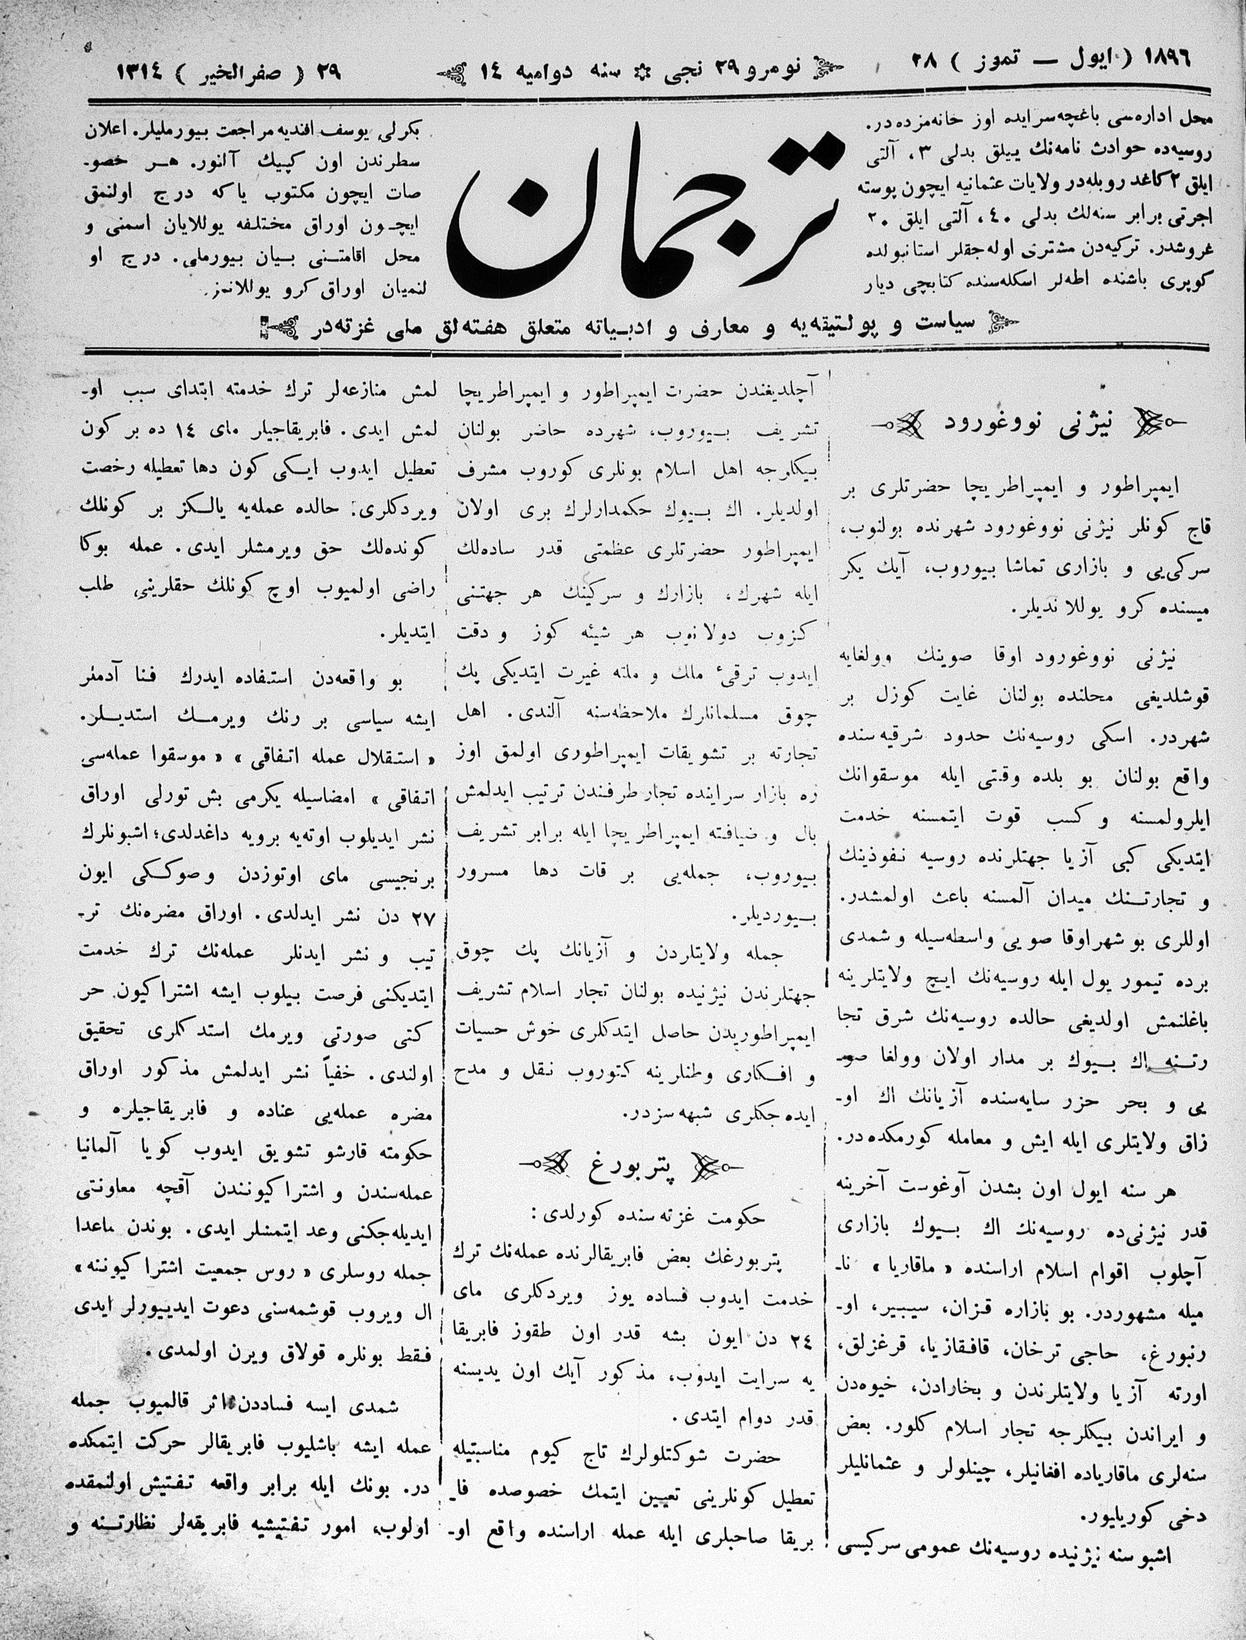 ١٨٩٦ ( ایول — تموز ) ٢٨
نومرو ٢٩ نجی ✡ سنه دوامیه ١٤
٢٩ ( صفر الخیر ) ١٣١٤
محل اداره‌سی باغچه‌سرایده اوز خانه‌مزده‌در.
روسیه‌ده حوادث نامه‌نك ییلق بدلی ٣، آلتی
ایلق ٢ كاغد روبله‌در ولایات عثمانیه ایچون پوسته
اجرتی برابر سنه‌لك بدلی ٤٠، آلتی ایلق ٢٠
غروشدر. تركیه‌دن مشتری اوله‌جقلر استانبولده
كوپری باشنده اطه‌لر اسكله‌سنده كتابچی دیار
ترجمان
بكرلی یوسف افندیه مراجعت بیورملیلر. اعلان
سطرندن اون كپیك آلنور. هـر خصو-
صات ایچون مكتوب یاكه درج اولنمق
ایچـون اوراق مختلفه یوللایان اسمنی و
محل اقامتـنی بـیان بیورملی. درج او
لنمیان اوراق كرو یوللانمز.
سیاست و پولـتیقه‌یه و معارف و ادبـیاته متعلق هفته‌لق ملی غزته‌در
نیژنی نووغورود
ایمپراطور و ایمپراطریچا حضرتلری بر
قاچ كونلر نیژنی نووغورود شهرنده بولنوب،
سركی‌یی و بازاری تماشا بیوروب، آیك یكر
میسنده كرو یوللاندیلر.
نیژنی نووغورود اوقا صوینك وولغایه
قوشلدیغی محلنده بولنان غایت كوزل بر
شهردر. اسكی روسیه‌نك حدود شرقیه‌سنده
واقع بولنان بو بلده وقتی ایله موسقوانك
ایلرولمسنه و كسب قوت ایتمسنه خدمت
ایتدیكی كبی آزیا جهتلرنده روسیه نفوذینك
و تجارتـنك میدان آلمسنه باعث اولمشدر.
اوللری بو شهر اوقا صویی واسطه‌سیله و شمدی
برده تیمور یول ایله روسیه‌نك ایچ ولایتلرینه
باغلنمش اولدیغی حالده روسیه‌نك شرق تجا
رتـنه اك بـیوك بر مدار اولان وولغا صو-
یی و بحر حزر سایه‌سنده آزیانك اك او-
زاق ولایتلری ایله ایش و معامله كورمكده‌در.
هر سنه ایول اون بشدن آوغوست آخرینه
قدر نیژنی‌ده روسیه‌نك اك بـیوك بازاری
آچلوب اقوام اسلام اراسنده « ماقاریا » نا-
میله مشهوردر. بو بازاره قزان، سیبیر، او-
رنبورغ، حاجی ترخان، قافقازیا، قرغزلق،
اورته آزیا ولایتلرندن و بخارادن، خیوه‌دن
و ایراندن بیكلرجه تجار اسلام كلور. بعض
سنه‌لری ماقاریاده افغانیلر، چینلولر و عثمانلیلر
دخی كوریلیور.
اشبو سنه نیژنیده روسیه‌نك عمومی سركیسی
آچلدیغندن حضرت ایمپراطور و ایمپراطریچا
تشریف بـیوروب، شهرده حاضر بولنان
بـیكلرجه اهل اسلام بونلری كوروب مشرف
اولدیلر. اك بـیوك حكمدارلرك بری اولان
ایمپراطور حضرتلری عظمتی قدر ساده‌لك
ایله شهرك، بازارك و سركینك هر جهتـنی
كزوب دولانوب هر شیئه كوز و دقت
ایدوب ترقئ ملك و ملته غیرت ایتدیكی پك
چوق مسلمانلرك ملاحظه‌سنه آلندی. اهل
تجارته بر تشویقات ایمپراطوری اولمق اوز
ره بازار سراینده تجار طرفندن ترتیب ایدلمش
بال و ضیافته ایمپراطریچا ایله برابر تشریف
بـیوروب، جمله‌یی بر قات دها مسرور
بـیوردیلر.
جمله ولایتلردن و آزیانك پك چوق
جهتلرندن نیژنیده بولنان تجار اسلام تشریف
ایمپراطوریدن حاصل ایتدكلری خوش حسیات
و افـكاری وطنلرینه كتوروب نـقل و مدح
ایده‌جكلری شبهه‌سزدر.
پتربورغ
حكومت غزته‌سنده كورلدی:
پتربورغك بعض فابریقالرنده عمله‌نك ترك
خدمت ایدوب فساده یوز ویردكلری مای
٢٤ دن ایون بشه قدر اون طقوز فابریقا
یه سرایت ایدوب، مذكور آیك اون یدیسنه
قدر دوام ایتدی.
حضرت شوكتلولرك تاج كیوم مناسبتیله
تعطیل كونلرینی تعیین ایتمك خصوصده فا-
بریقا صاحبلری ایله عمله اراسنده واقع او-
لمش منازعه‌لر ترك خدمته ابتدای سبب او-
لمش ایدی. فابریقاجیلر مای ١٤ ده بر كون
تعطیل ایدوب ایكی كون دها تعطیله رخصت
ویردكلری حالده عمله‌یه یالـكز بر كونلك
كونده‌لك حق ویرمشلر ایدی. عمله بوكا
راضی اولمیوب اوچ كونلك حقلرینی طلب
ایتدیلر.
بو واقعه‌دن استفاده ایدرك فـنا آدملر
ایشه سیاسی بر رنك ویرمـك استدیـلر.
« استـقلال عمله اتـفاقی » « موسقوا عمله‌سی
اتـفاقی » امضاسیله یكرمی بش تورلی اوراق
نشر ایدیلوب اوته‌یه برویه داغدلدی؛ اشبونلرك
برنجیسی مای اوتوزدن و صوكـكی ایون
٢٧ دن نشر ایدلدی. اوراق مضره‌نك تر-
تیب و نشر ایدنلر عمله‌نك ترك خدمت
ایتدیكنی فرصت بـیلوب ایشه اشتراكیون حر
كتی صورتی ویرمك استدكلری تحقیق
اولندی. خفیاً نشر ایدلمش مذكور اوراق
مضره عمله‌یی عناده و فابریقاجیلره و
حكومته قارشو تشویق ایدوب كویا آلمانیا
عمله‌سندن و اشتراكیونندن آقچه معاونتی
ایدیله‌جكنی وعد ایتمشلر ایدی. بوندن ماعدا
جمله روسلری « روس جمعیت اشتراكیوننه »
ال ویروب قوشمه‌سنی دعوت ایدییورلر ایدی
فـقط بونلره قولاق ویرن اولمدی.
شمدی ایسه فساددن اثر قالمیوب جمله
عمله ایشه باشلیوب فابریقالر حركت ایتمكده
در. بونك ایله برابر واقعه تـفتیش اولنمقده
اولوب، امور تـفتیشیه فابریقه‌لر نظارتـنه و